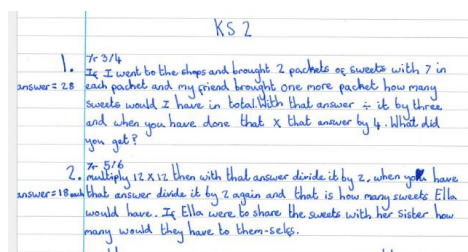 KS 2
Yr 3/4
1. If I went to the shops and brought 2 packets of sweets with 7 in
answer = 28 each packet and my friend brought one more packet how many
sweets would I have in total. With that answer ÷ it by three
and when you have done that x that answer by 4. What did
you get?
Yr 5/6
2. multiply 12 x 12 then with that answer divide it by 2, when you have
answer = 18 each that answer divide it by 2 again and that is how many sweets Ella
would have. If Ella were to share the sweets with her sister how
many would they have to them-selfs.